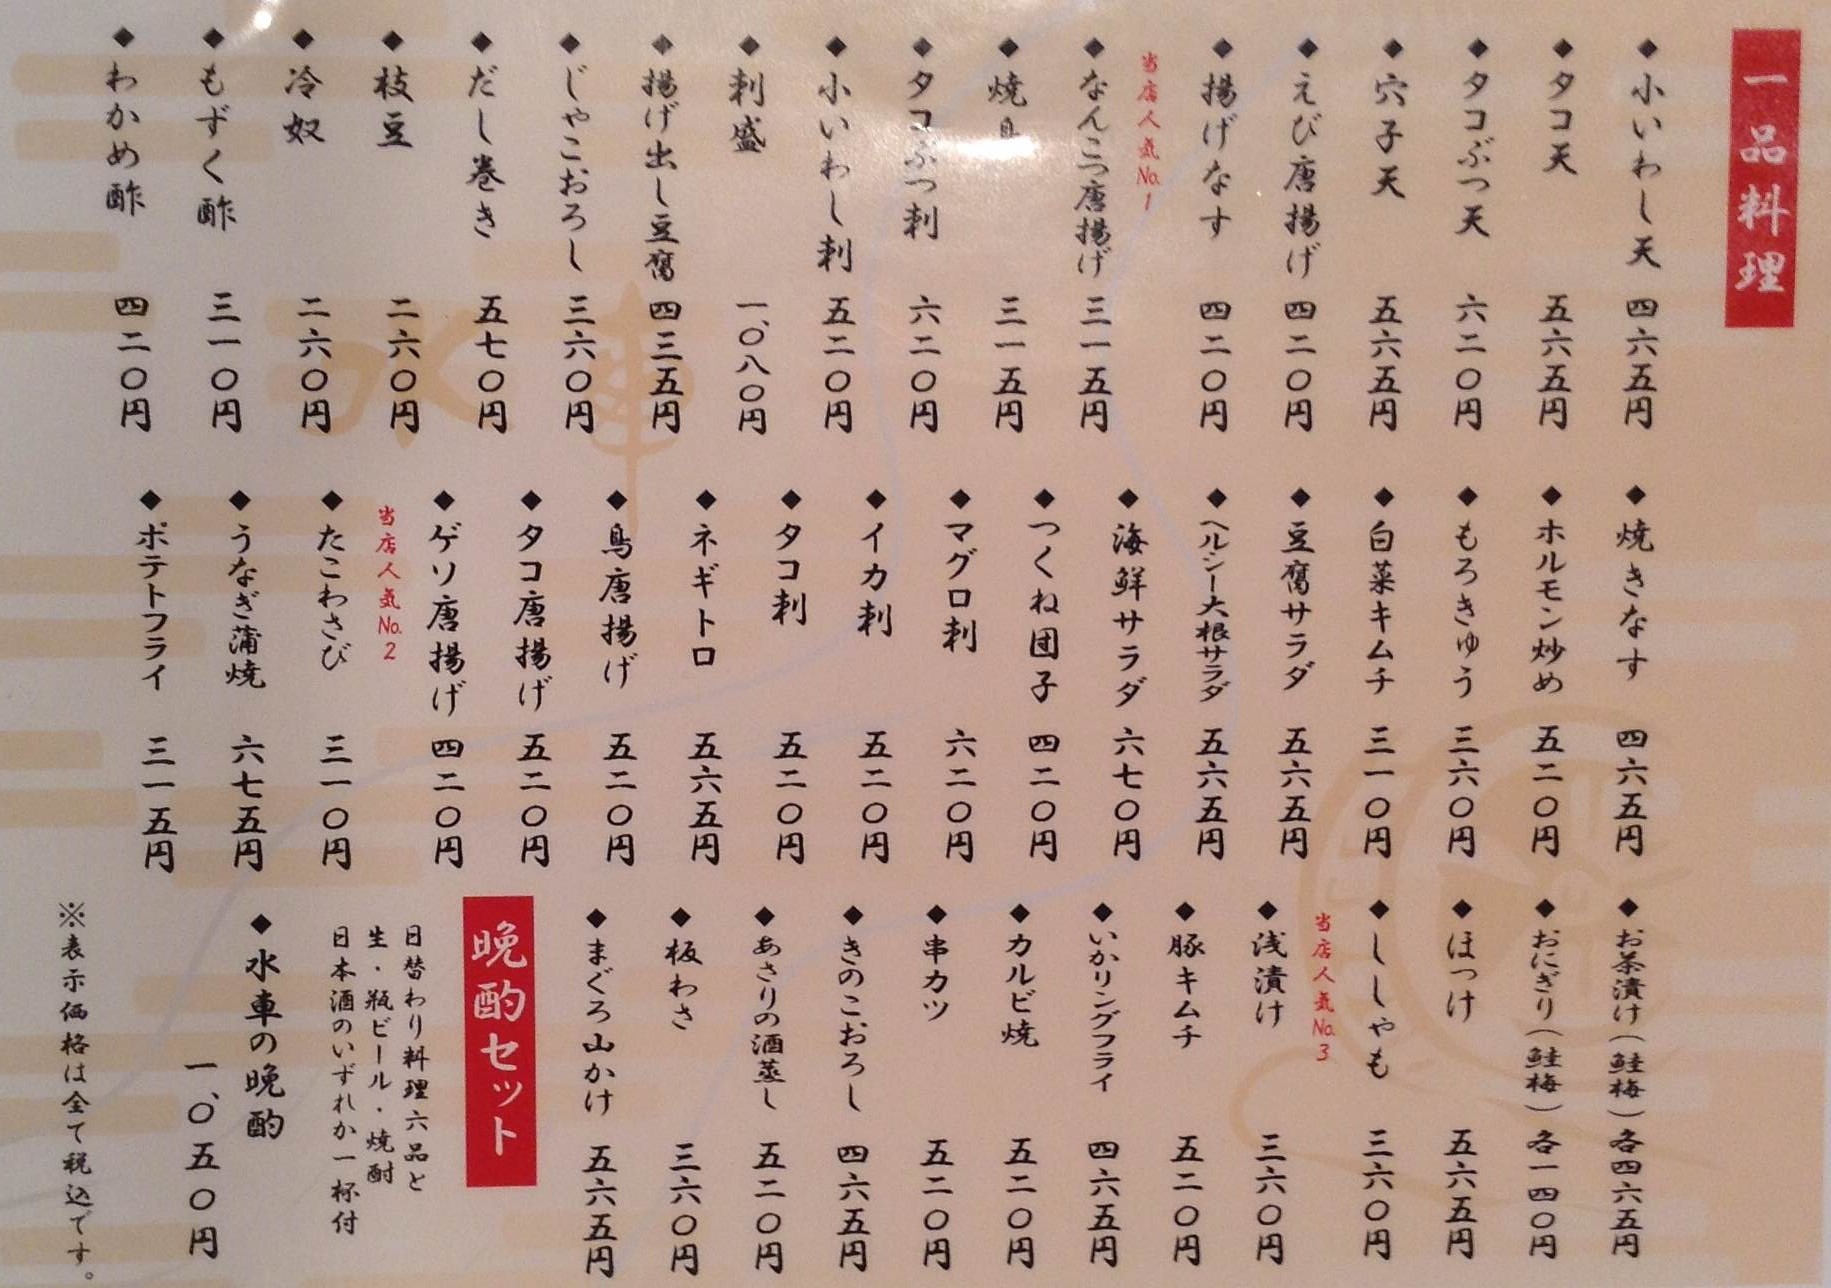 一品料理
◆小いわし天 四六五円
◆タコ天 五六五円
◆タコぶつ天 六二〇円
◆穴子天 五六五円
◆えび唐揚げ 四二〇円
◆揚げなす 四二〇円
当店人気No.1
◆なんこつ唐揚げ 三一五円
◆焼鳥 三一五円
◆タコぶつ刺 六二〇円
◆小いわし刺 五二〇円
◆刺盛 一、〇八〇円
◆揚げ出し豆腐 四三五円
◆じゃこおろし 三六〇円
◆だし巻き 五七〇円
◆枝豆 二六〇円
◆冷奴 二六〇円
◆もずく酢 三一〇円
◆わかめ酢 四二〇円
◆焼きなす 四六五円
◆ホルモン炒め 五二〇円
◆もろきゅう 三六〇円
◆白菜キムチ 三一〇円
◆豆腐サラダ 五六五円
◆ヘルシー大根サラダ 五六五円
◆海鮮サラダ 六七〇円
◆つくね団子 四二〇円
◆マグロ刺 六二〇円
◆イカ刺 五二〇円
◆タコ刺 五二〇円
◆ネギトロ 五六五円
◆鳥唐揚げ 五二〇円
◆タコ唐揚げ 五二〇円
◆ゲソ唐揚げ 四二〇円
当店人気No.2
◆たこわさび 三一〇円
◆うなぎ蒲焼 六七五円
◆ポテトフライ 三一五円
◆お茶漬け(鮭梅)各四六五円
◆おにぎり(鮭梅)各一四〇円
◆ほっけ 五六五円
◆ししゃも 三六〇円
当店人気No.3
◆浅漬け 三六〇円
◆豚キムチ 五二〇円
◆いかリングフライ 四六五円
◆カルビ焼 五二〇円
◆串カツ 五二〇円
◆きのこおろし 四六五円
◆あさりの酒蒸し 五二〇円
◆板わさ 三六〇円
◆まぐろ山かけ 五六五円
晩酌セット
日替わり料理六品と
生・瓶ビール・焼酎
日本酒のいずれか一杯付
◆水車の晩酌
一、〇五〇円
※表示価格は全て税込です。
水車